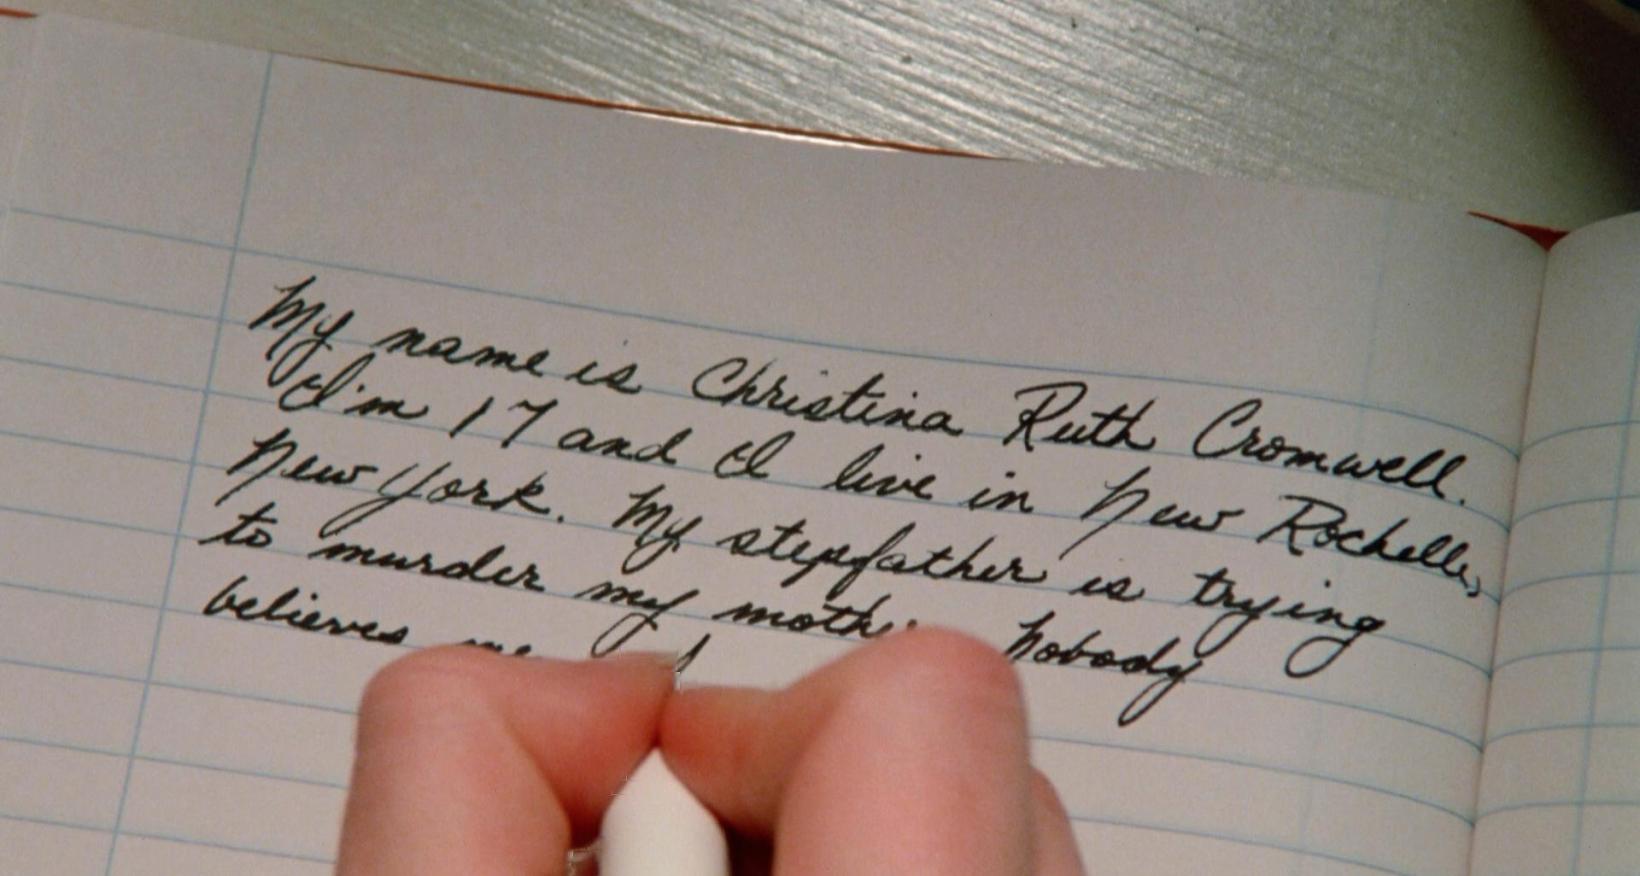 My name is Christina Ruth Cromwell.
I'm 17 and I live in New Rochelle,
New York. My stepfather is trying
to murder my Nobody
believes me